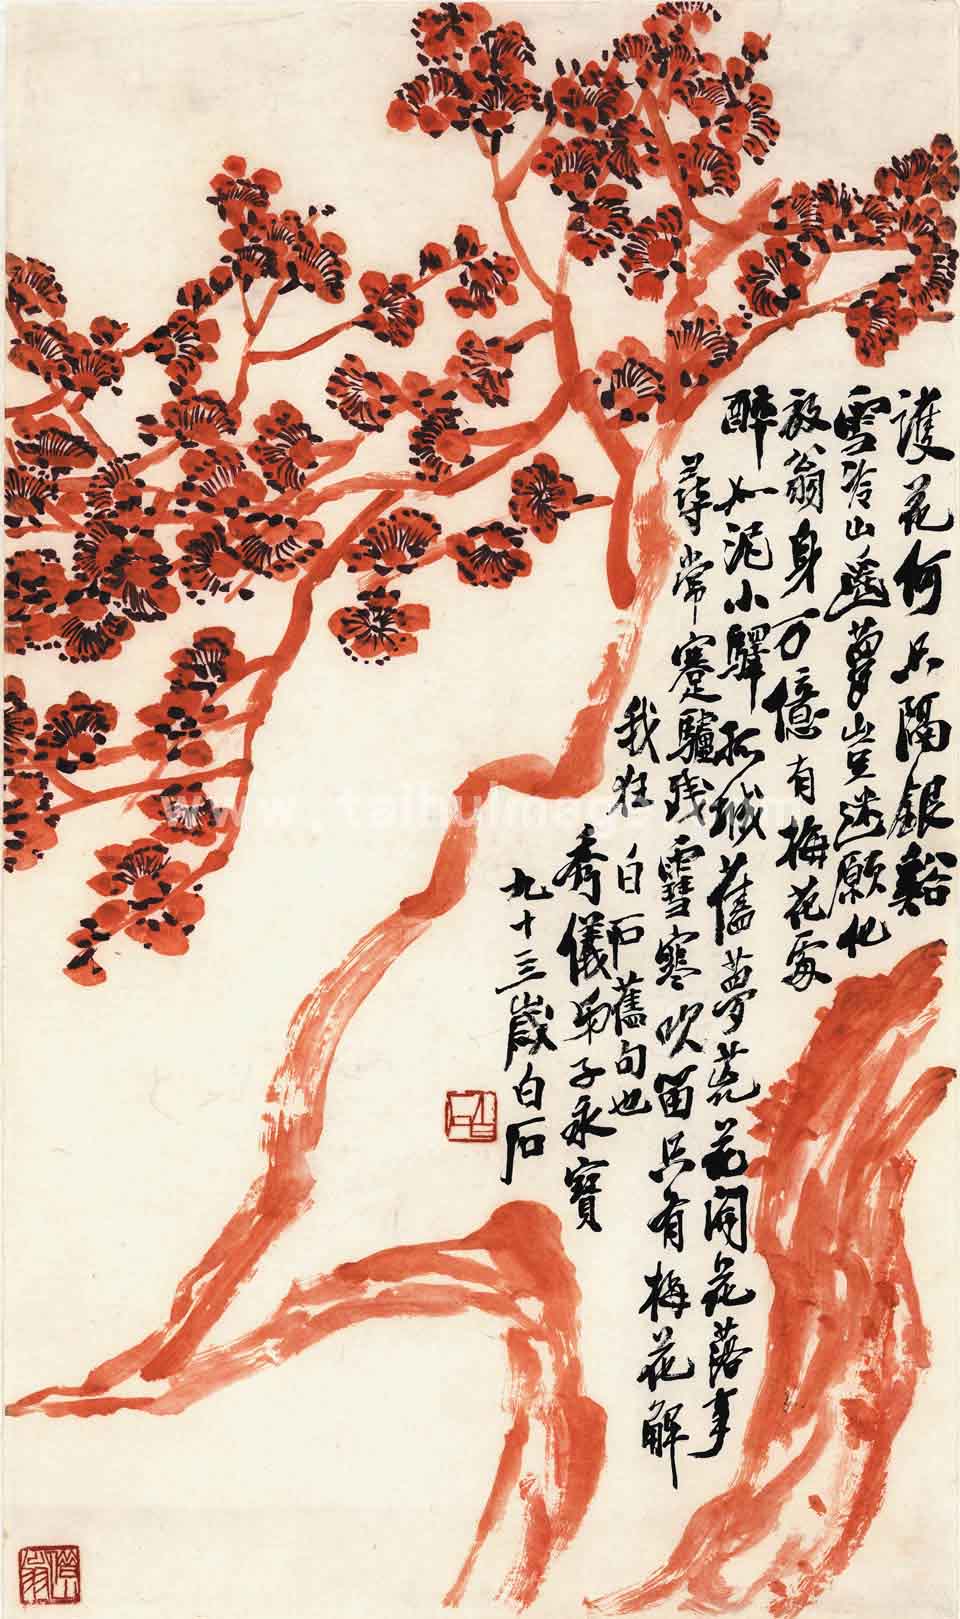 護花何只隔銀谿
雪冷山遙夢豈迷願化
放翁身万億有梅花處
醉如泥小驛孤城舊夢荒花開花落事
尋常蹇驢殘雪寒吹笛只有梅花解
我狂白石舊句也
秀儀弟子永寶
九十三歲白石
白石